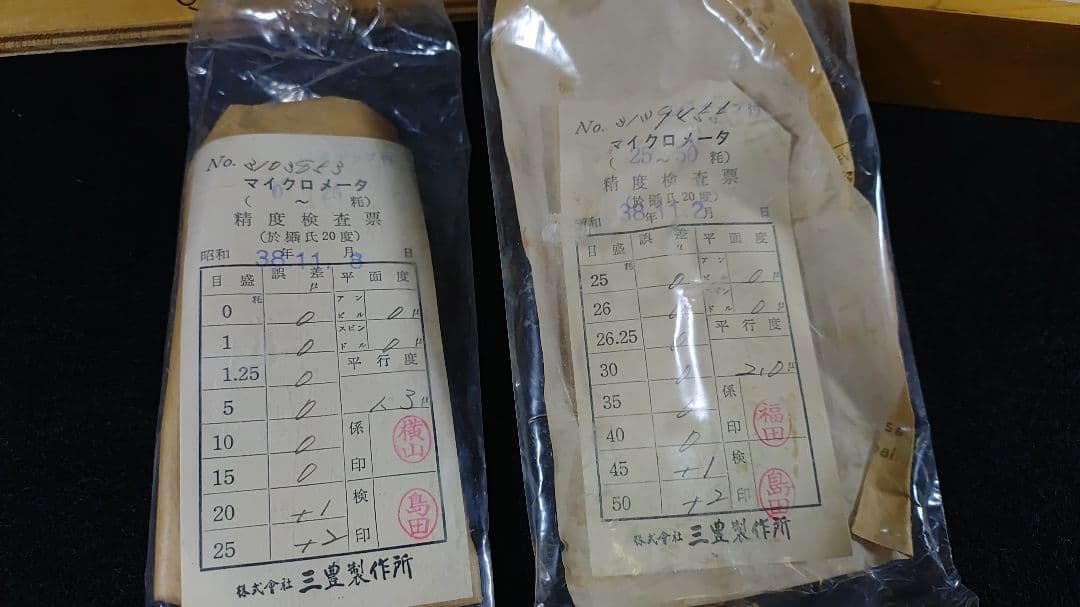 No. 3103553
マイクロメータ
( 0 ～ 25 粍)
精度検査票
(於攝氏20度)
昭和 38年 11. 8月 日
目盛 誤差μ 平面度
0粍 0 アンビル 0μ
1 0 スピンドル 0μ
1.25 0 平行度
5 0 1.3μ
10 0 係印 横山
15 0
20 +1 検印 島田
25 +2
株式會社 三豊製作所
No.
マイクロメータ
( 25～50 粍)
精度検査票
(於攝氏20度)
昭和 38年 11. 2月 日
目盛 誤差μ 平面度
25粍 0 アンビル 0μ
26 0 スピンドル 0μ
26.25 0 平行度
30 0 2.0μ
35 0 係印 福田
40 0
45 +1 検印 島田
50 +2
株式會社 三豊製作所